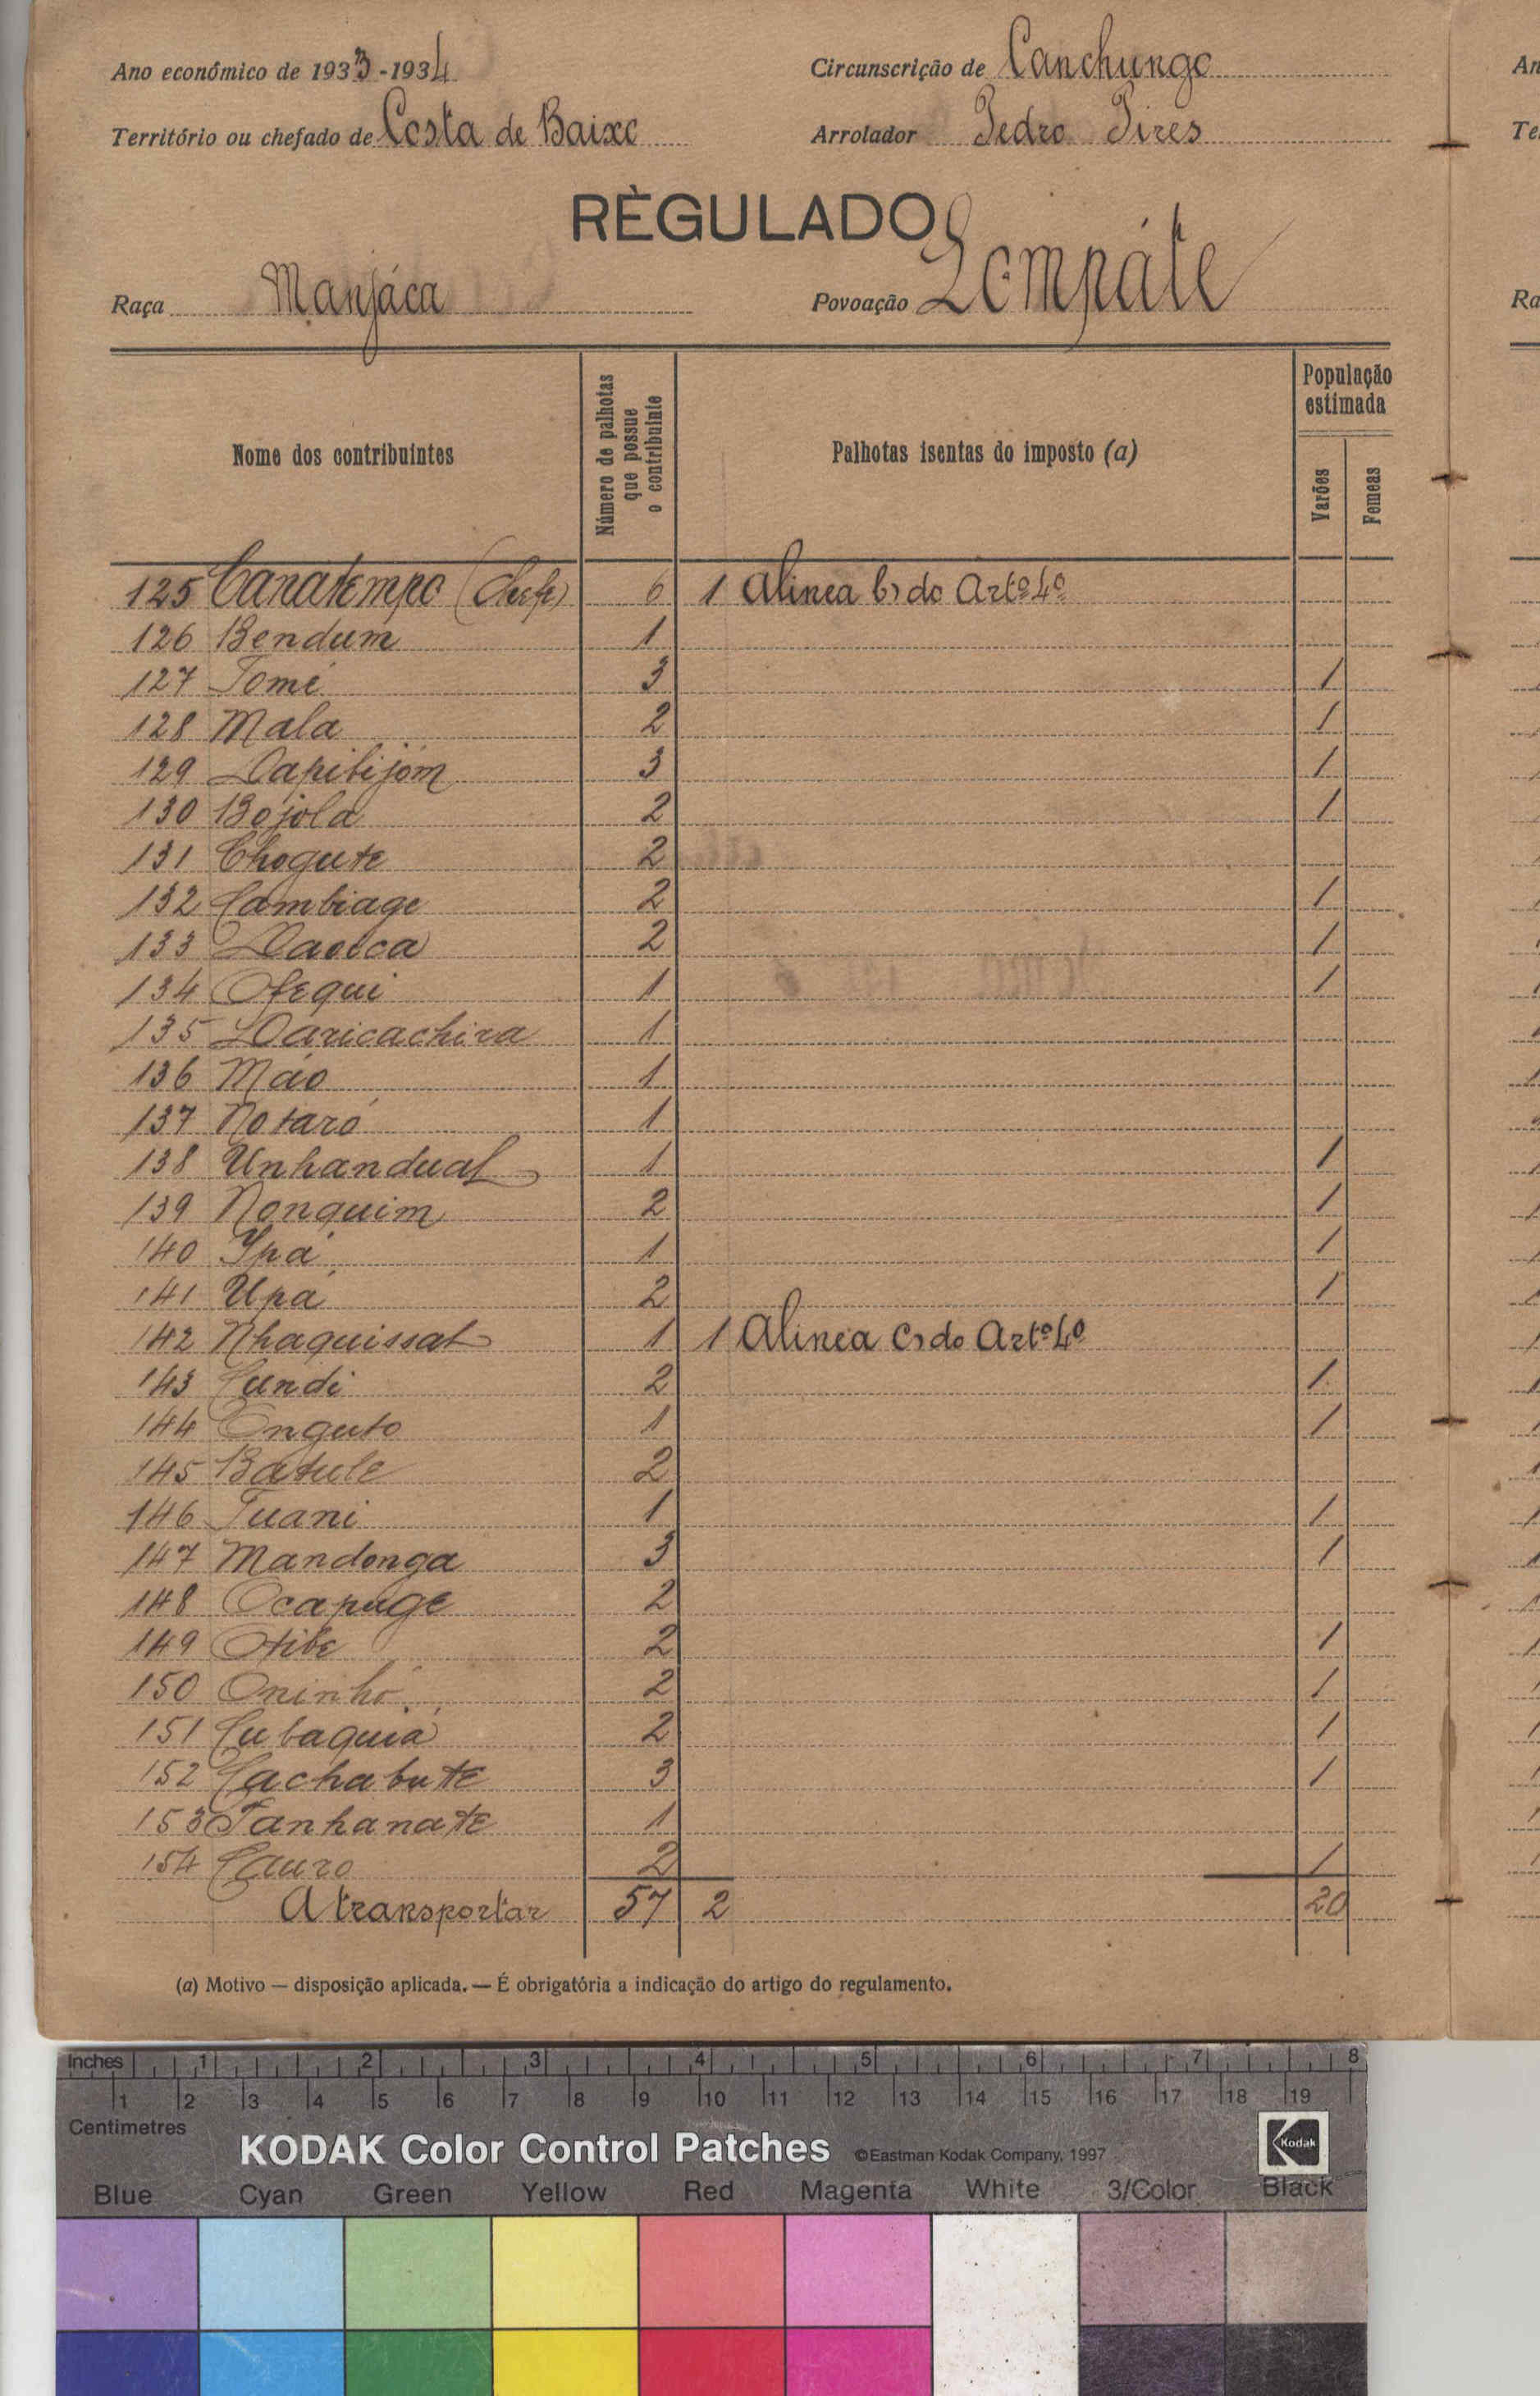 Ano económico de 1933-1934 Circunscrição de Canchungo
Território ou chefado de Costa de Baixo Arrolador Pedro Pires
RÈGULADO
Raça Manjáca Povoação Lempáte
Nome dos contribuintes
Número de palhotas que possue o contribuinte
Palhotas isentas do imposto (a)
População estimada
Varões
Femeas
125 Canatempo (Chefe) 6 1 Alinea b) do Artº 4º
126 Bendum 1
127 Tomé 3 1
128 Mala 2 1
129 Dapibijóm 3 1
130 Bójola 2 1
131 Chogute 2
132 Cambiage 2 1
133 2 1
134 Ofequi 1 1
135 Daricachira 1
136 Máo 1
137 Notaró 1
138 Unhandual 1 1
139 Nonquim 2 1
140 Ypá 1 1
141 Upá 2 1
142 Nhaquissat 1 1 Alinea c) do Artº 4º
143 Cundi 2 1
144 Onguto 1 1
145 Batule 2
146 Tuani 1 1
147 Mandonga 3 1
148 Ocapuge 2
149 Otibe 2 1
150 Oninhó 2 1
151 Cubaquiá 2 1
152 Cachabute 3 1
153 Fanhanate 1
154 Cauro 2 1
A transportar 57 2 20
(a) Motivo — disposição aplicada. — É obrigatória a indicação do artigo do regulamento.
Inches 1 2 3 4 5 6 7 8
1 2 3 4 5 6 7 8 9 10 11 12 13 14 15 16 17 18 19
Centimetres
KODAK Color Control Patches ©Eastman Kodak Company, 1997 Kodak
Blue Cyan Green Yellow Red Magenta White 3/Color Black